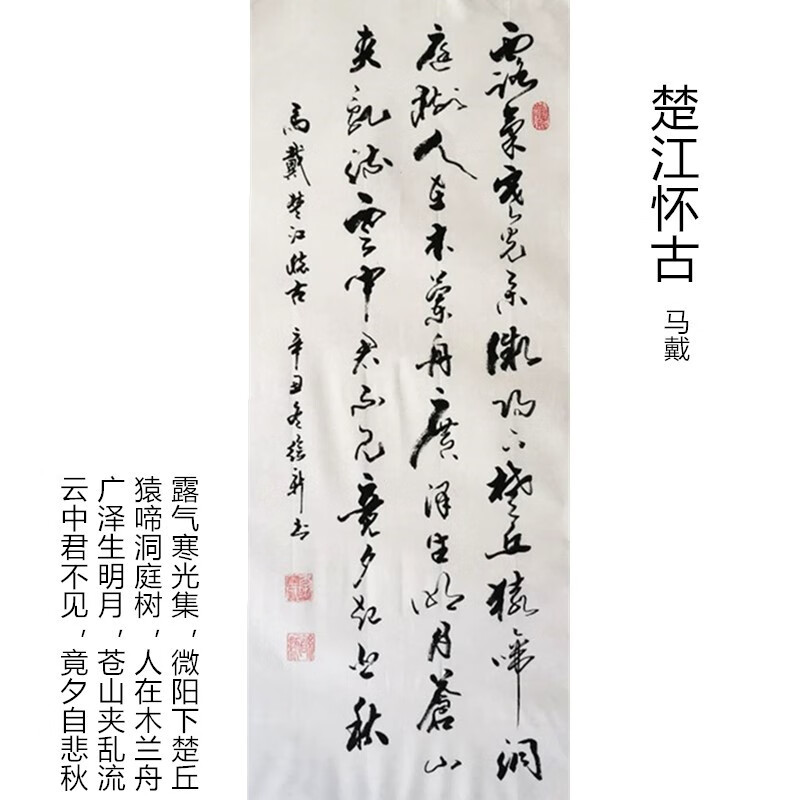 楚江怀古
马戴
露氣寒光集微陽下楚丘猿啼洞
庭樹人在木蘭舟廣澤生明月蒼山
夾亂流雲中君不見竟夕自悲秋
馬戴楚江懷古 辛丑冬新書
露气寒光集，微阳下楚丘
猿啼洞庭树，人在木兰舟
广泽生明月，苍山夹乱流
云中君不见，竟夕自悲秋